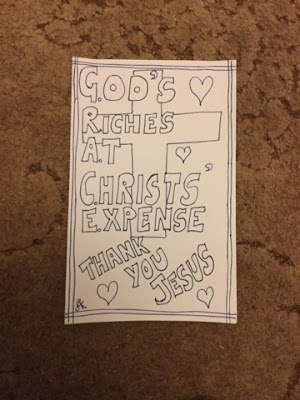 G.OD'S
R.ICHES
A.T
C.HRISTS'
E.XPENSE
THANK
YOU
JESUS